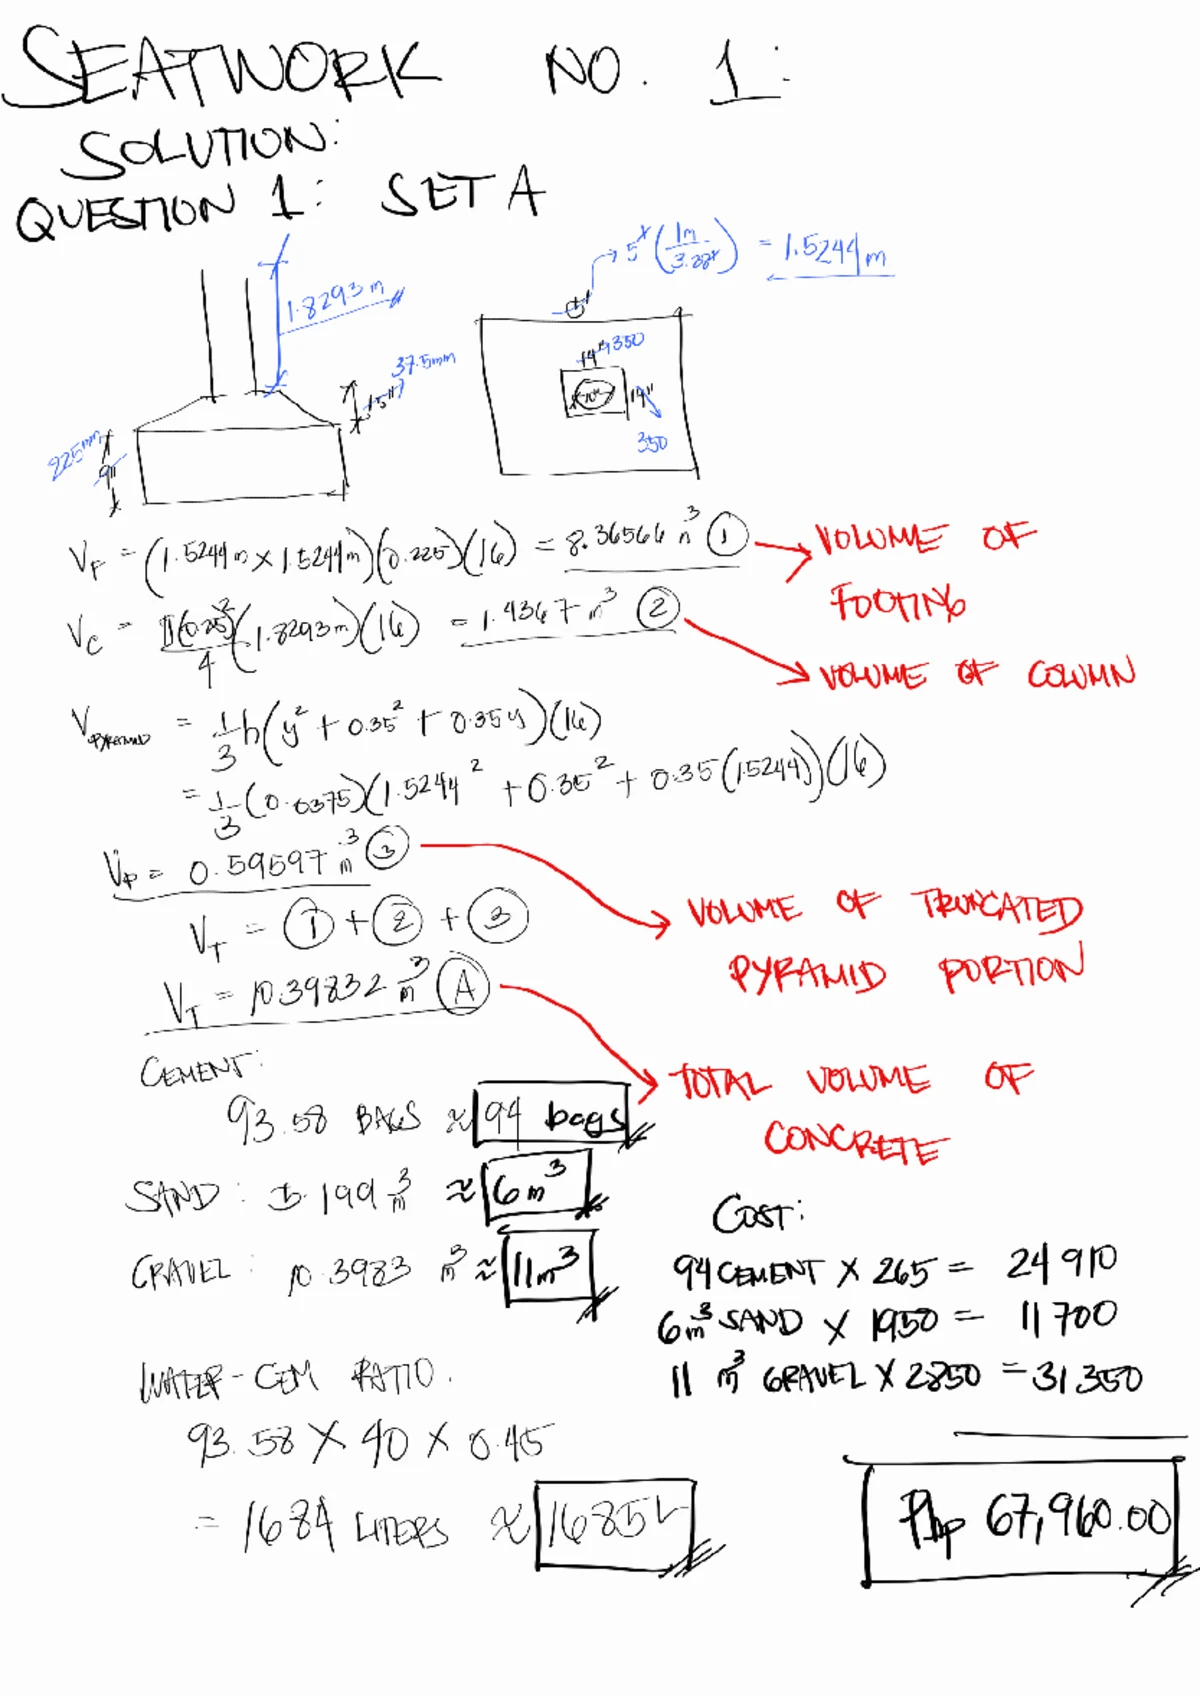 SEATWORK NO. 1:
SOLUTION:
QUESTION 1: SET A
5' (1m / 3.28') = 1.5244 m
1.8293 m
5'
37.5mm
1.5"
14" 350
10"
14"
350
225mm
9"
V_F = (1.5244 m × 1.5244 m)(0.225)(16) = 8.36566 m³ ① → VOLUME OF FOOTING
V_C = π(0.25)²/4 (1.8293 m)(16) = 1.4367 m³ ② → VOLUME OF COLUMN
V_PYRAMID = 1/3 h(y² + 0.35² + 0.35y)(16)
= 1/3 (0.0375)(1.5244² + 0.35² + 0.35(1.5244))(16)
V_P = 0.59597 m³ ③ → VOLUME OF TRUNCATED PYRAMID PORTION
V_T = ① + ② + ③
V_T = 10.39832 m³ Ⓐ → TOTAL VOLUME OF CONCRETE
CEMENT:
93.58 BAGS ≈ 94 bags
SAND: 5.199 m³ ≈ 6 m³
GRAVEL: 10.3983 m³ ≈ 11 m³
WATER-CEM RATIO.
93.58 × 40 × 0.45
= 1684 LITERS ≈ 1685 L
COST:
94 CEMENT × 265 = 24 910
6 m³ SAND × 1950 = 11 700
11 m³ GRAVEL × 2850 = 31 350
Php 67,960.00